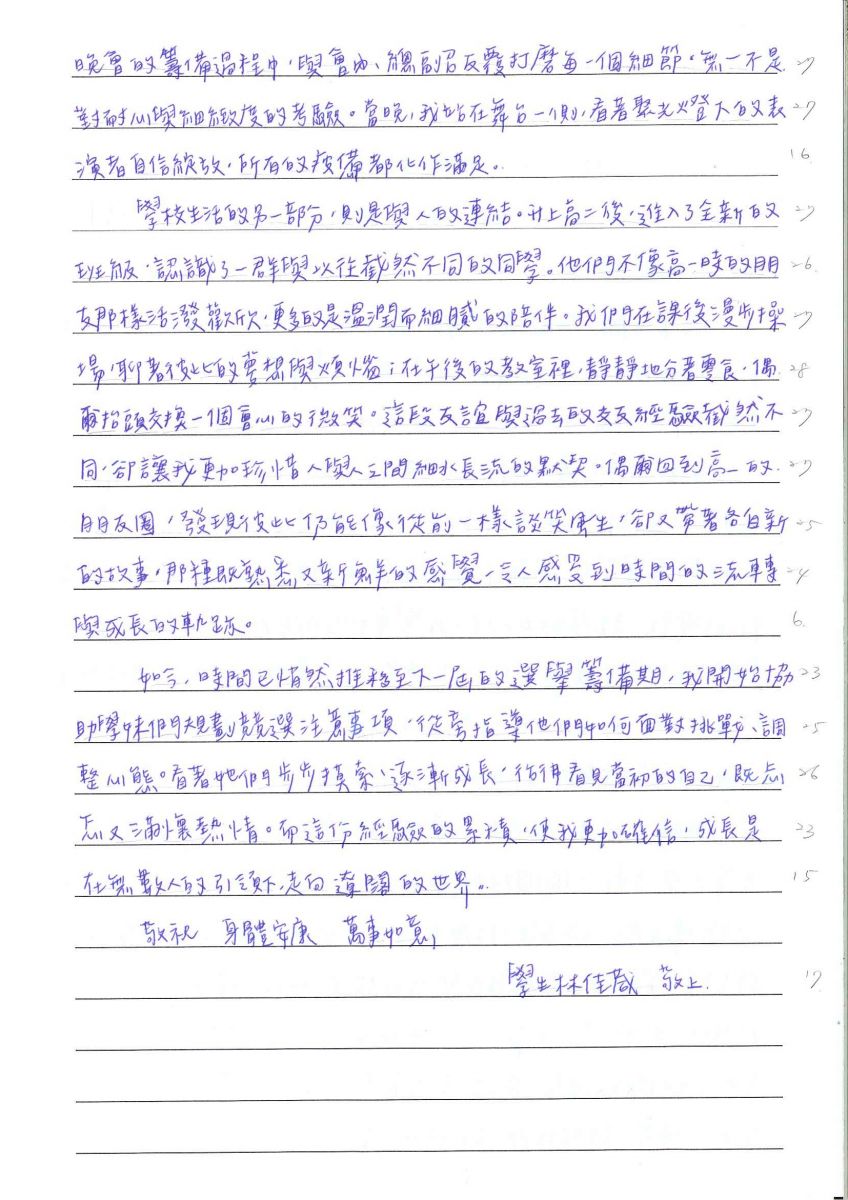 晚會的籌備過程中，與會內、總副召反覆打磨每一個細節。無一不是 27
對耐心與細緻度的考驗。當晚，我站在舞台一側，看著聚光燈下的表 27
演者自信綻放，所有的疲備都化作滿足。 16
學校生活的另一部分，則是與人的連結。升上高二後，進入了全新的 27
班級，認識了一群與以往截然不同的同學。他們不像高一時的朋 26
友那樣活潑歡欣，更多的是溫潤而細膩的陪伴。我們在課後漫步操 27
場，聊著彼此的夢想與煩惱；在午後的教室裡，靜靜地分著零食，偶 28
爾抬頭交換一個會心的微笑。這段友誼與過去的交友經驗截然不 27
同，卻讓我更加珍惜人與人之間細水長流的默契。偶爾回到高一的 27
朋友圈，發現彼此仍能像從前一樣談笑風生，卻又帶著各自新 25
的故事，那種既熟悉又新鮮的感覺，令人感受到時間的流轉 24
與成長的軌跡。 6
如今，時間已悄然推移至下一屆的選舉籌備期，我開始協 23
助學妹們規劃競選注意事項，從旁指導他們如何面對挑戰、調 25
整心態。看著她們步步摸索、逐漸成長，彷彿看見當初的自己，既忐 26
忑又滿懷熱情。而這份經驗的累積，使我更加確信，成長是 23
在無數人的引領下，走向遼闊的世界。 15
敬祝 身體安康 萬事如意
學生林佳葳 敬上 17